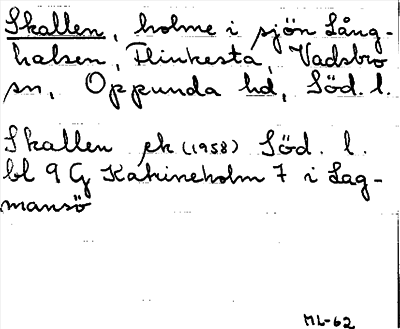 Skallen, holme i sjön Lång-
halsen, Flinkesta, Vadsbro
sn, Oppunda hd, Söd. l.
Skallen ek (1958) Söd. l.
bl 9 G Katrineholm 7 i Lag-
mansö
ML-62